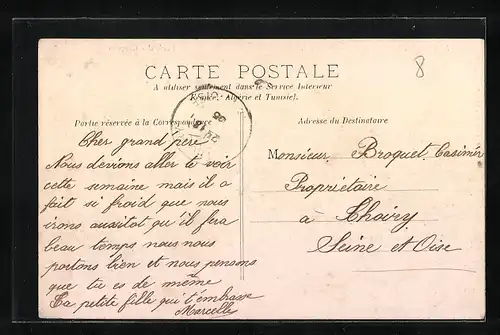 8
CARTE POSTALE
A utiliser seulement dans le Service Interieur
(France, Algérie et Tunisie).
Partie réservée à la Correspondance
Adresse du Destinataire
Cher grand père
Nous devions aller te voir
cette semaine mais il a
fait si froid que nous
irons aussitot qu'il fera
beau temps nous nous
portons bien et nous pensons
que tu es de même
Ta petite fille qui t'embrasse
Marcelle
Monsieur Broquet Casimir
Propriétaire
à Thoiry
Seine et Oise